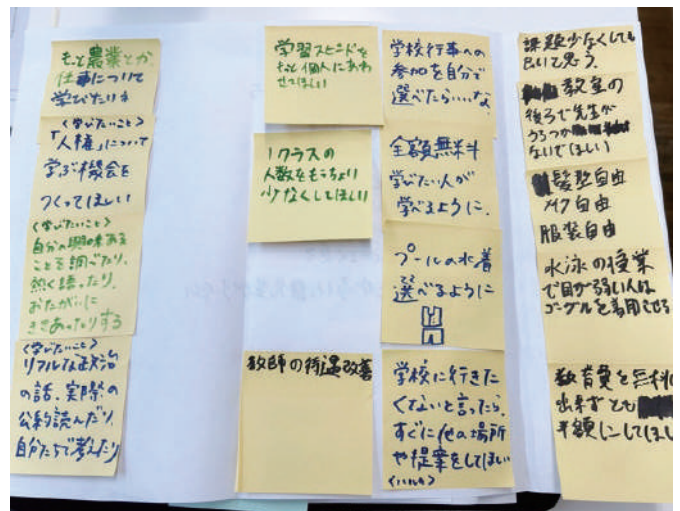 もっと農業とか
仕事について
学びたいね
<学びたいこと>
「人権」について
学ぶ機会を
つくってほしい
<学びたいこと>
自分の興味ある
ことを調べたり、
熱く語ったり、
おたがいに
ききあったりする
<学びたいこと>
リアルな政治
の話、実際の
公約読んだり、
自分たちで考えたり
学習スピードを
もっと個人にあわ
せてほしい
1クラスの
人数をもうちょい
少なくしてほしい
教師の待遇改善
学校行事への
参加を自分で
選べたらいいな
全額無料
学びたい人が
学べるように。
プールの水着
選べるように
学校に行きた
くないと言ったら、
すぐに他の場所
や提案をしてほしい
課題少なくしても
良いと思う。
教室の
後ろで先生が
うろつか
ないでほしい
髪型自由
メイク自由
服装自由
水泳の授業
で目が弱い人は
ゴーグルを着用させる
教育費を無料に
出来ずとも
半額にしてほし